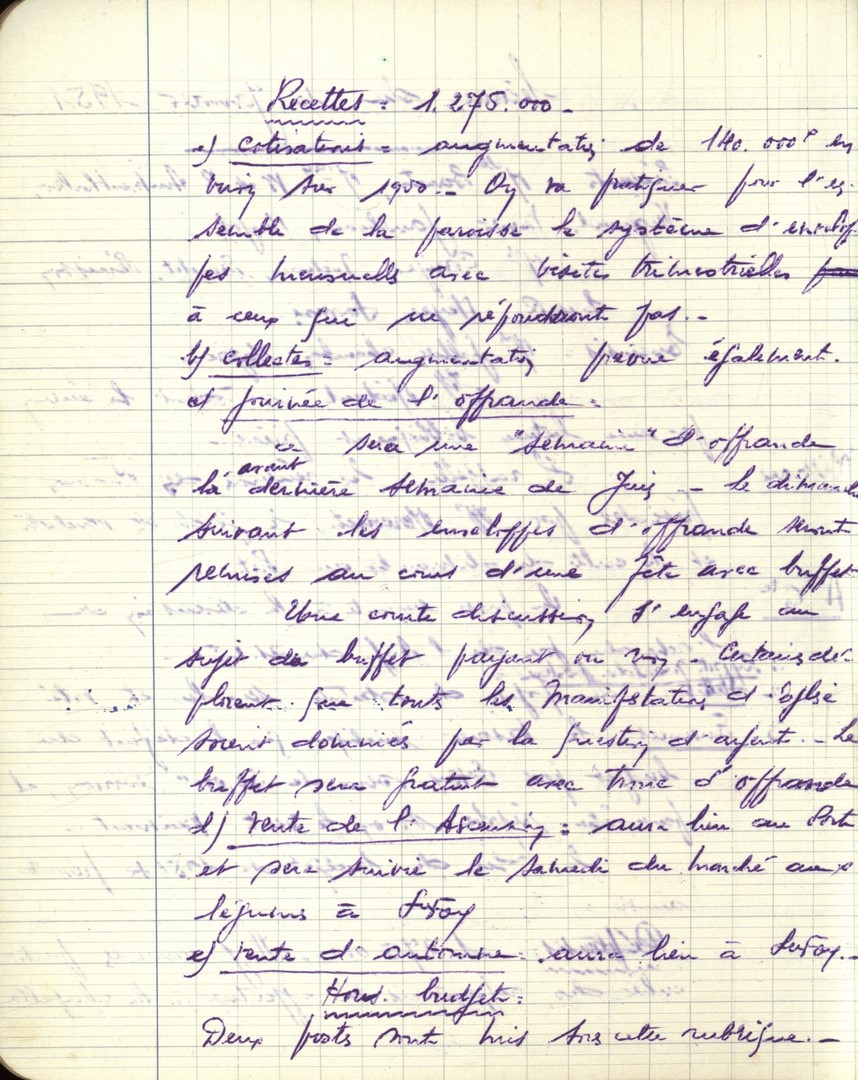 Recettes = 1.275.000 -
a) cotisations = augmentation de 140.000F en
viron sur 1950. - On y va pratiquer pour l'en-
semble de la paroisse le système d'envelop-
pes mensuelles avec visites trimestrielles
à ceux qui ne répondront pas. -
b) collectes = augmentation prévue également.
c) Journée de l'offrande =
ce sera une "semaine" d'offrande
la avant dernière semaine de Juin - le dimanche
suivant les enveloppes d'offrande seront
remises au cours d'une fête avec buffet
Une courte discussion s'engage au
sujet du buffet payant ou non - Certains dé-
plorent que toutes les manifestations d'église
soient dominées par la question d'argent. - Le
buffet sera gratuit avec tronc d'offrande
d) Vente de l'Ascension = aura lieu au Port
et sera suivie le samedi du marché aux
légumes à
e) Vente d'automne = aura lieu à
Hors budget =
Deux postes sont mis sous cette rubrique. -